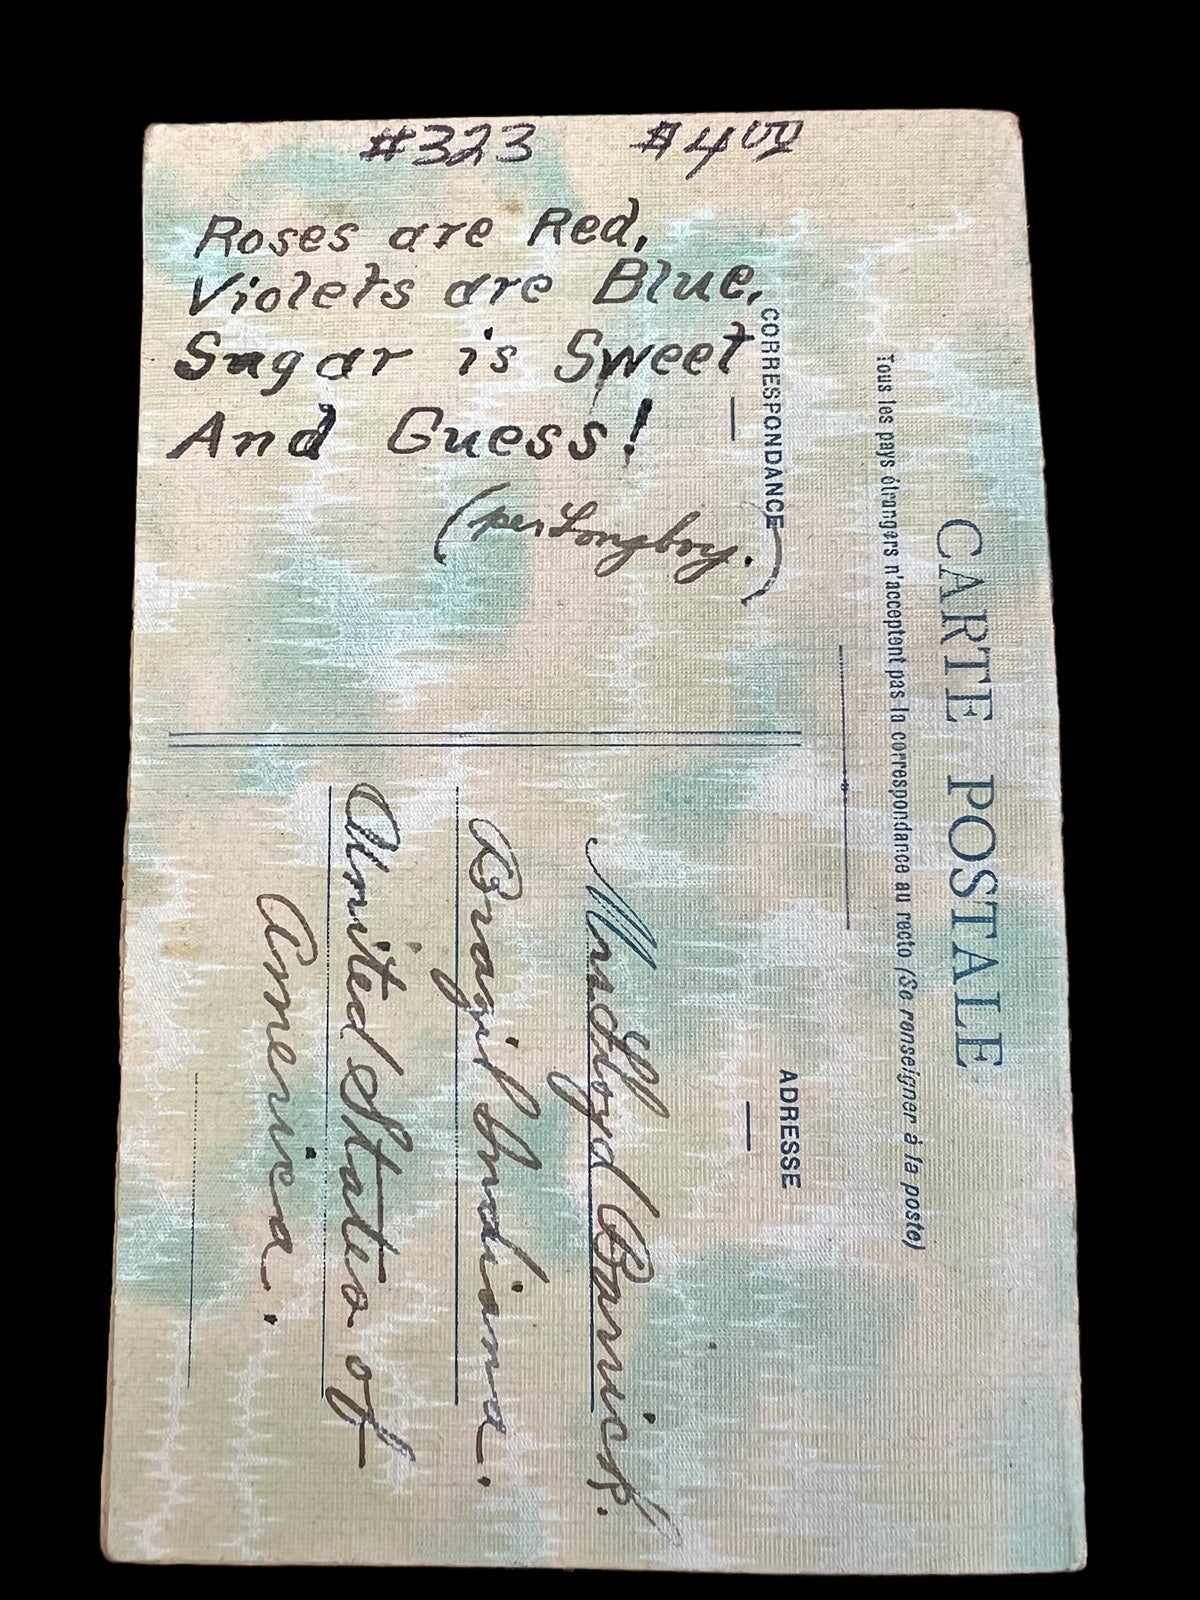 #323 $4.00
Roses are Red,
Violets are Blue,
Sugar is Sweet
And Guess!
(per Longboy.)
CARTE POSTALE
Tous les pays étrangers n'acceptent pas la correspondance au recto (Se renseigner à la poste)
CORRESPONDANCE
ADRESSE
Mrs Lloyd Barrick.
Brazil Indiana.
United States of
America.